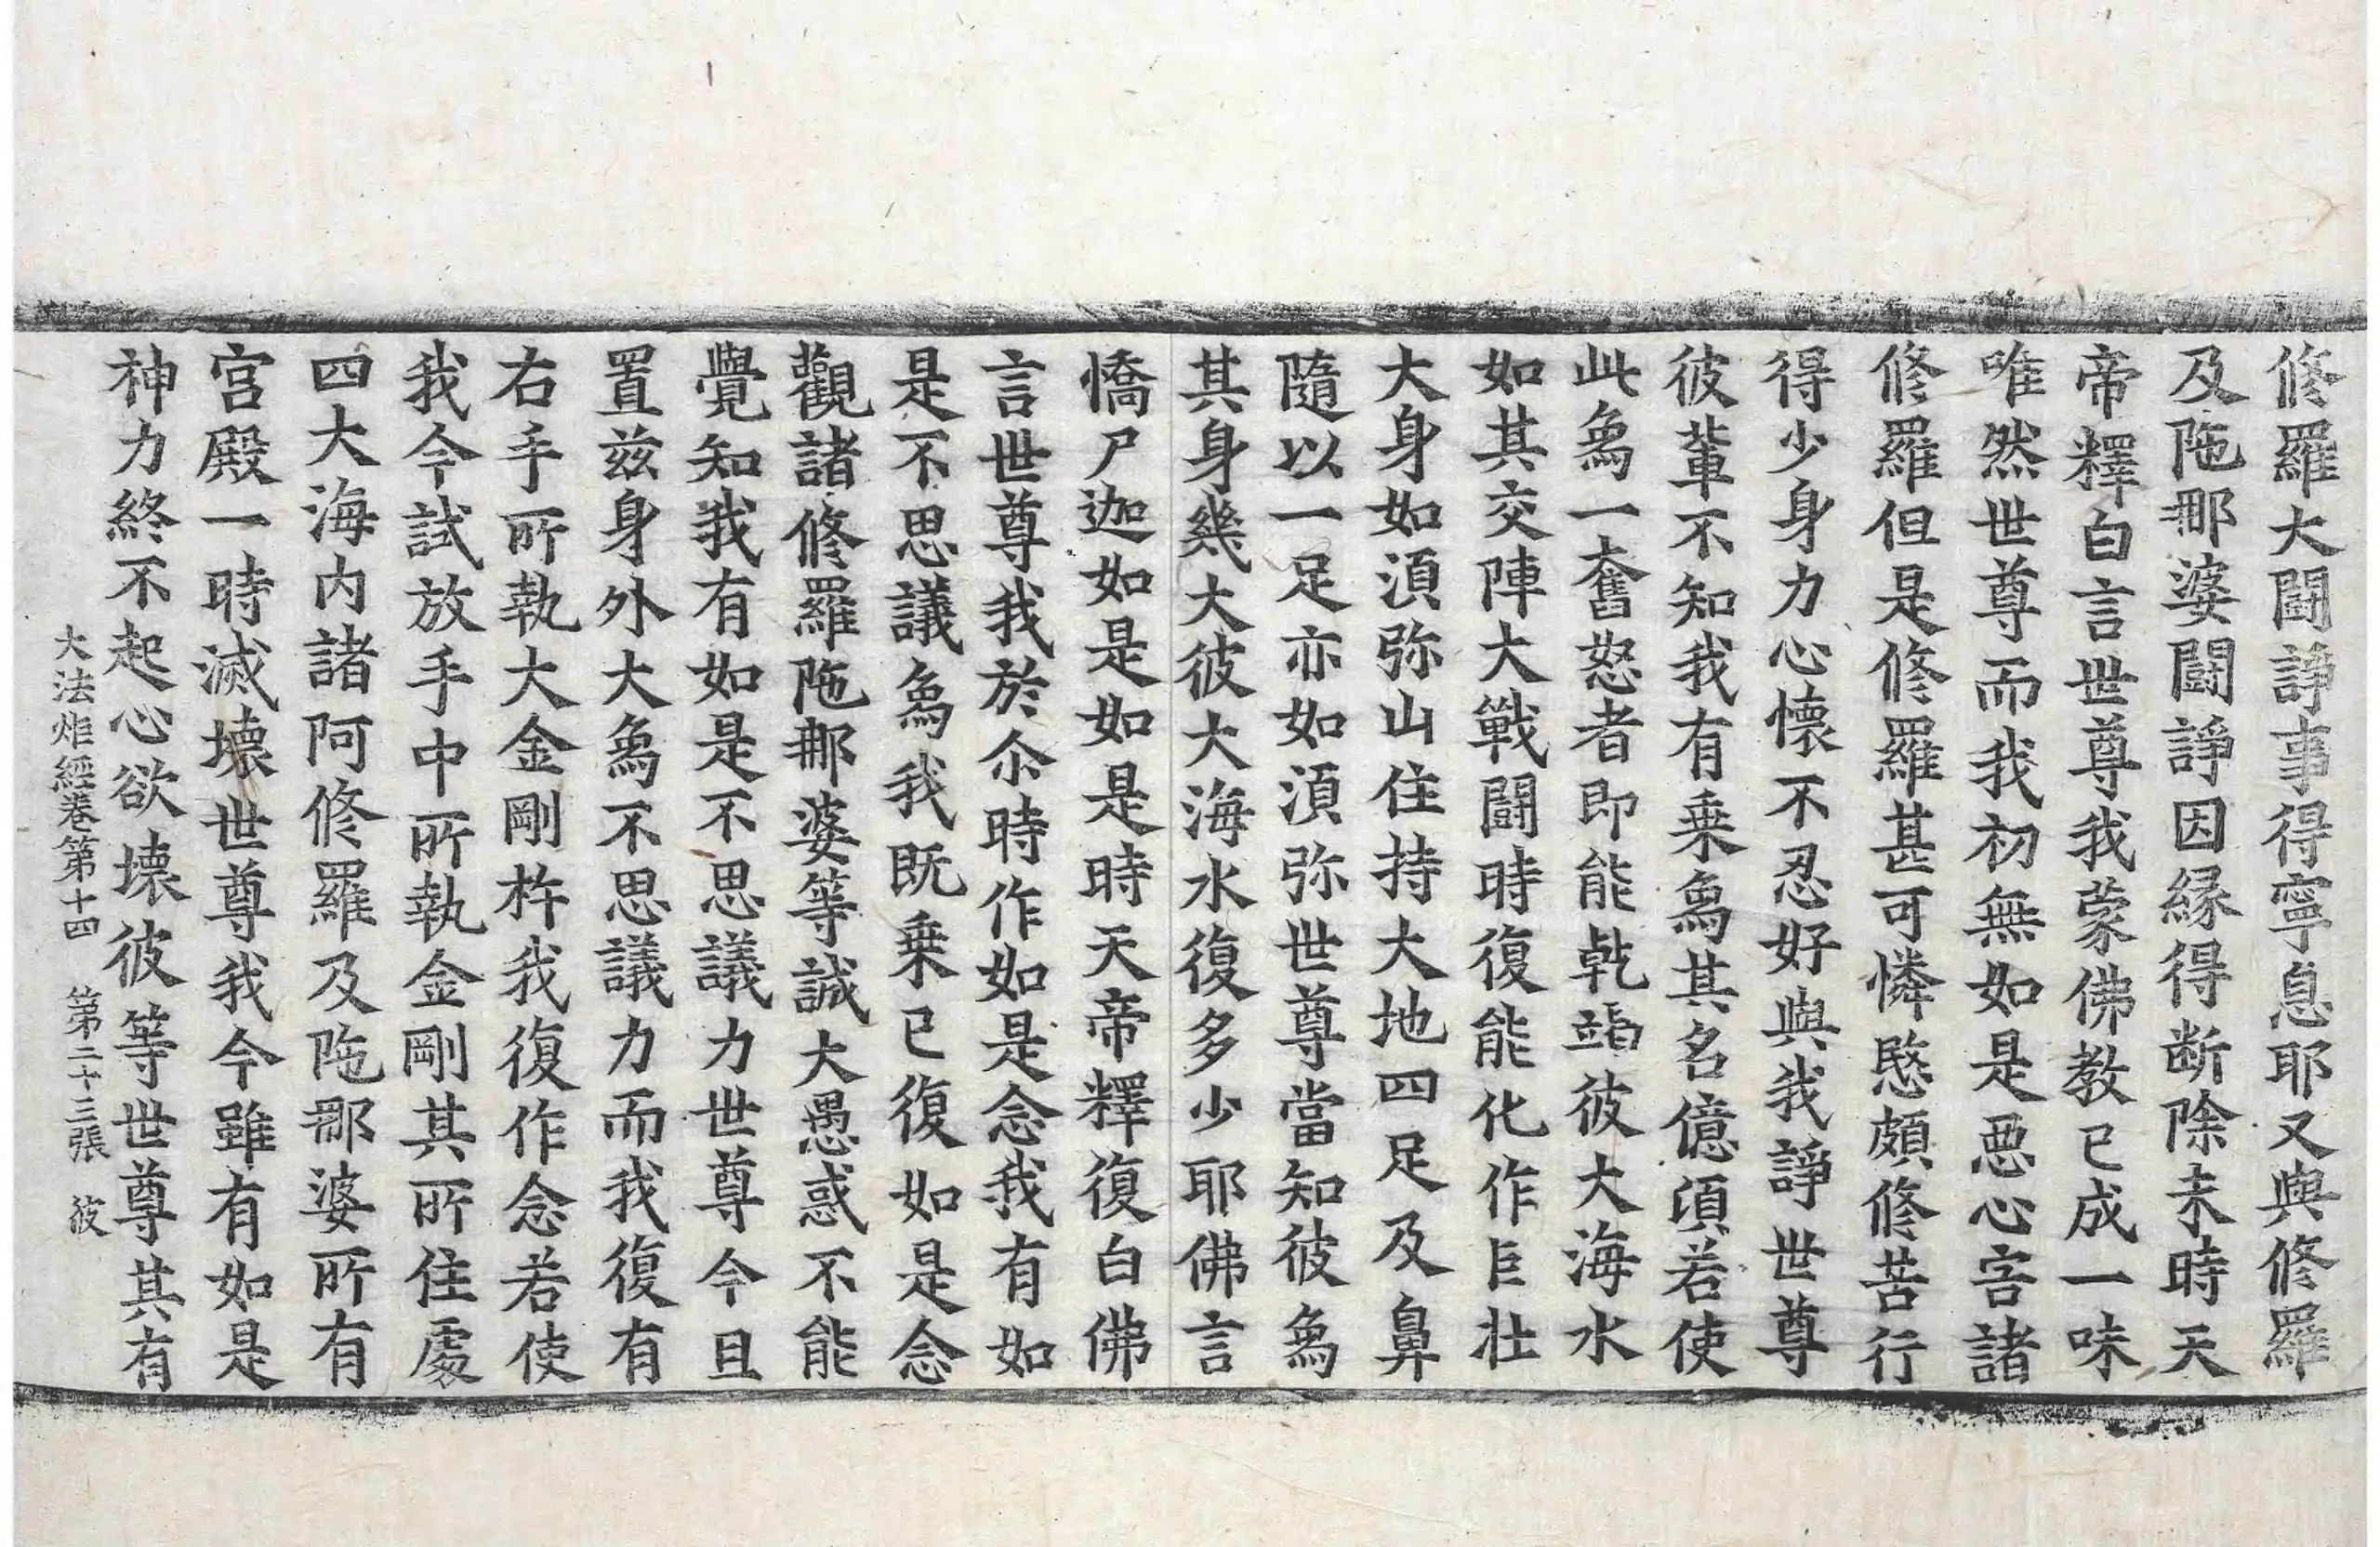 修羅大鬪諍事得寧息耶又與修羅
及陁那婆鬪諍因縁得断除未時天
帝釋白言世尊我蒙佛教已成一味
唯然世尊而我初無如是惡心害諸
修羅但是修羅甚可憐愍頗修苦行
得少身力心懷不忍好與我諍世尊
彼輩不知我有乗象其名億湏若使
此象一奮怒者即能乹竭彼大海水
如其交陣大戰鬪時復能化作巨壮
大身如湏弥山住持大地四足及鼻
隨以一足亦如湏弥世尊當知彼象
其身幾大彼大海水復多少耶佛言
憍尸迦如是如是時天帝釋復白佛
言世尊我於尒時作如是念我有如
是不思議象我既乗已復如是念
觀諸修羅陁那婆等誠大愚惑不能
覺知我有如是不思議力世尊今且
置兹身外大象不思議力而我復有
右手所執大金剛杵我復作念若使
我今試放手中所執金剛其所住處
四大海内諸阿修羅及陁那婆所有
宫殿一時滅壊世尊我今雖有如是
神力終不起心欲壊彼等世尊其有
大法炬經卷第十四　第二十三張　彼